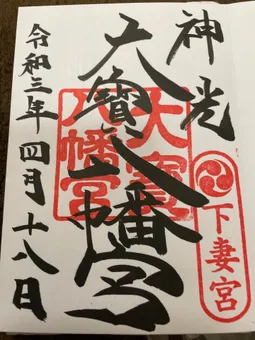 神光
大寶八幡宮
大寶
八幡宮
下妻宮
令和三年四月十八日